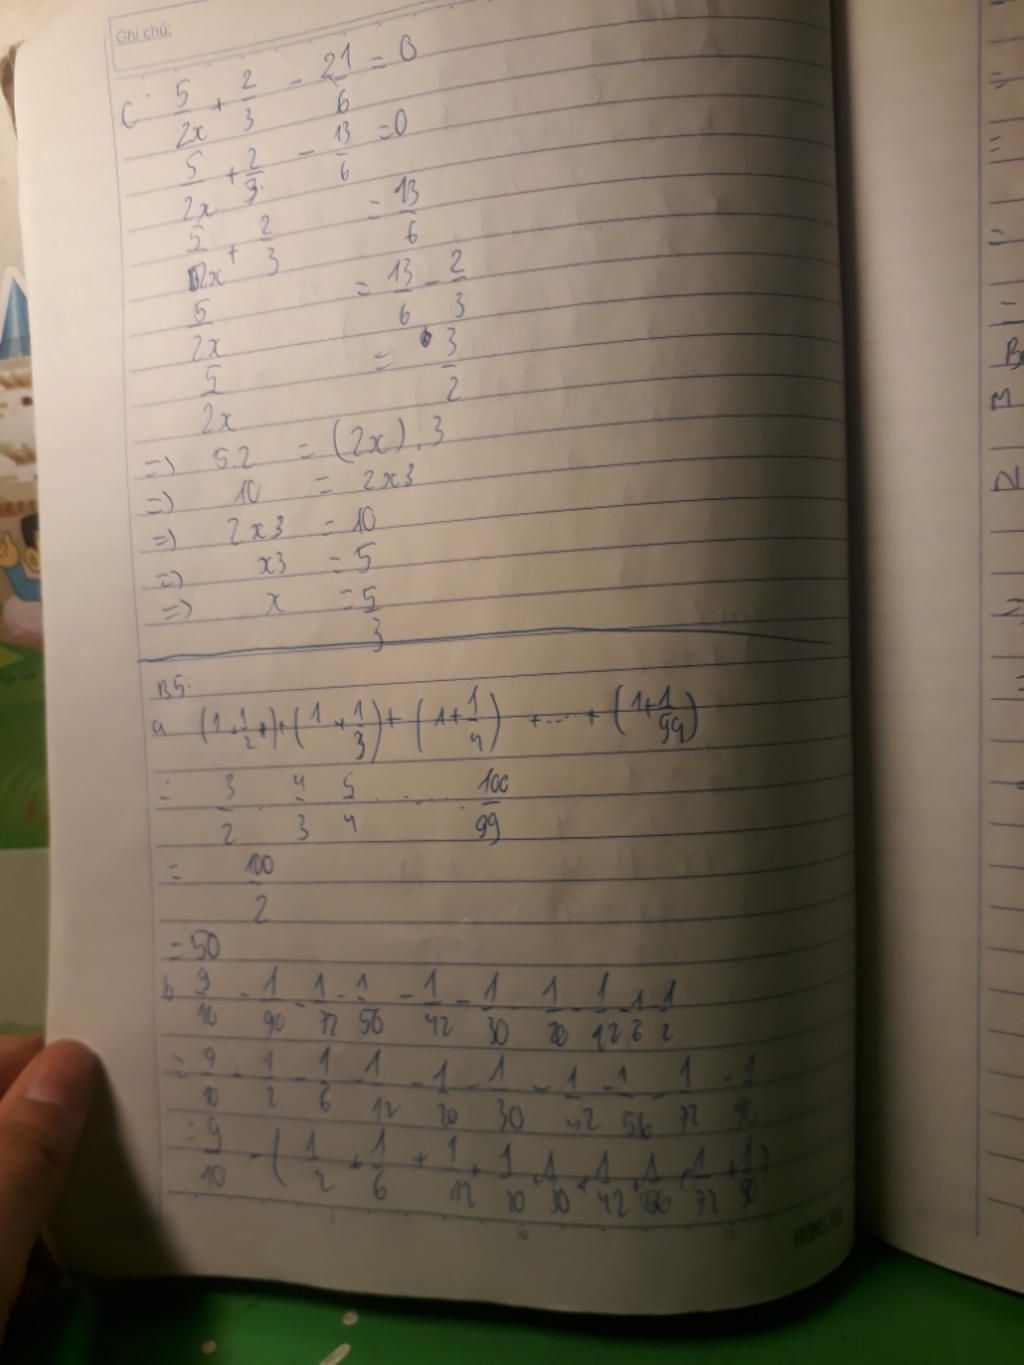 Ghi chú:
C. 5/2x + 2/3 - 2 1/6 = 0
5/2x + 2/3 - 13/6 = 0
5/2x + 2/3 = 13/6
5/2x = 13/6 - 2/3
5/2x = 3/2
=) 5.2 = (2x).3
=) 10 = 2x3
=) 2x3 = 10
=) x3 = 5
=) x = 5/3
B5:
a (1+1/2+)+(1+1/3)+(1+1/4) +...+ (1+1/99)
= 3/2 . 4/3 5/4 ..... 100/99
= 100/2
= 50
b 9/10 - 1/90 - 1/72 - 1/56 - 1/42 - 1/30 - 1/20 - 1/12 - 1/6 - 1/2
= 9/10 - 1/2 - 1/6 - 1/12 - 1/20 - 1/30 - 1/42 - 1/56 - 1/72 - 1/90
= 9/10 - (1/2 + 1/6 + 1/12 + 1/20 + 1/30 + 1/42 + 1/56 + 1/72 + 1/90)